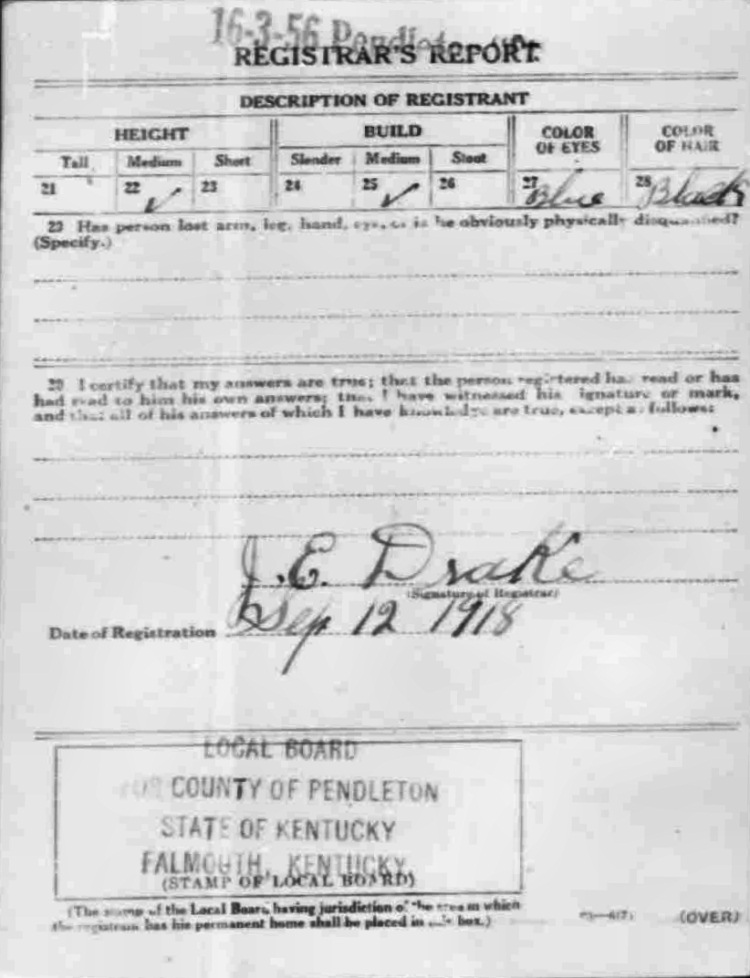 16-3-56 Pendleton
REGISTRAR'S REPORT
DESCRIPTION OF REGISTRANT
HEIGHT BUILD COLOR OF EYES COLOR OF HAIR
Tall Medium Short Slender Medium Stout
21 22 ✓ 23 24 25 ✓ 26 27 Blue 28 Black
29 Has person lost arm, leg, hand, eye, or is he obviously physically disqualified?
(Specify.)
30 I certify that my answers are true; that the person registered has read or has
had read to him his own answers; that I have witnessed his signature or mark,
and that all of his answers of which I have knowledge are true, except as follows:
J. E. Drake
(Signature of Registrar)
Date of Registration Sep 12 1918
LOCAL BOARD
FOR COUNTY OF PENDLETON
STATE OF KENTUCKY
FALMOUTH, KENTUCKY.
(STAMP OF LOCAL BOARD)
(The stamp of the Local Board having jurisdiction of the area in which
the registrant has his permanent home shall be placed in this box.)
(OVER)